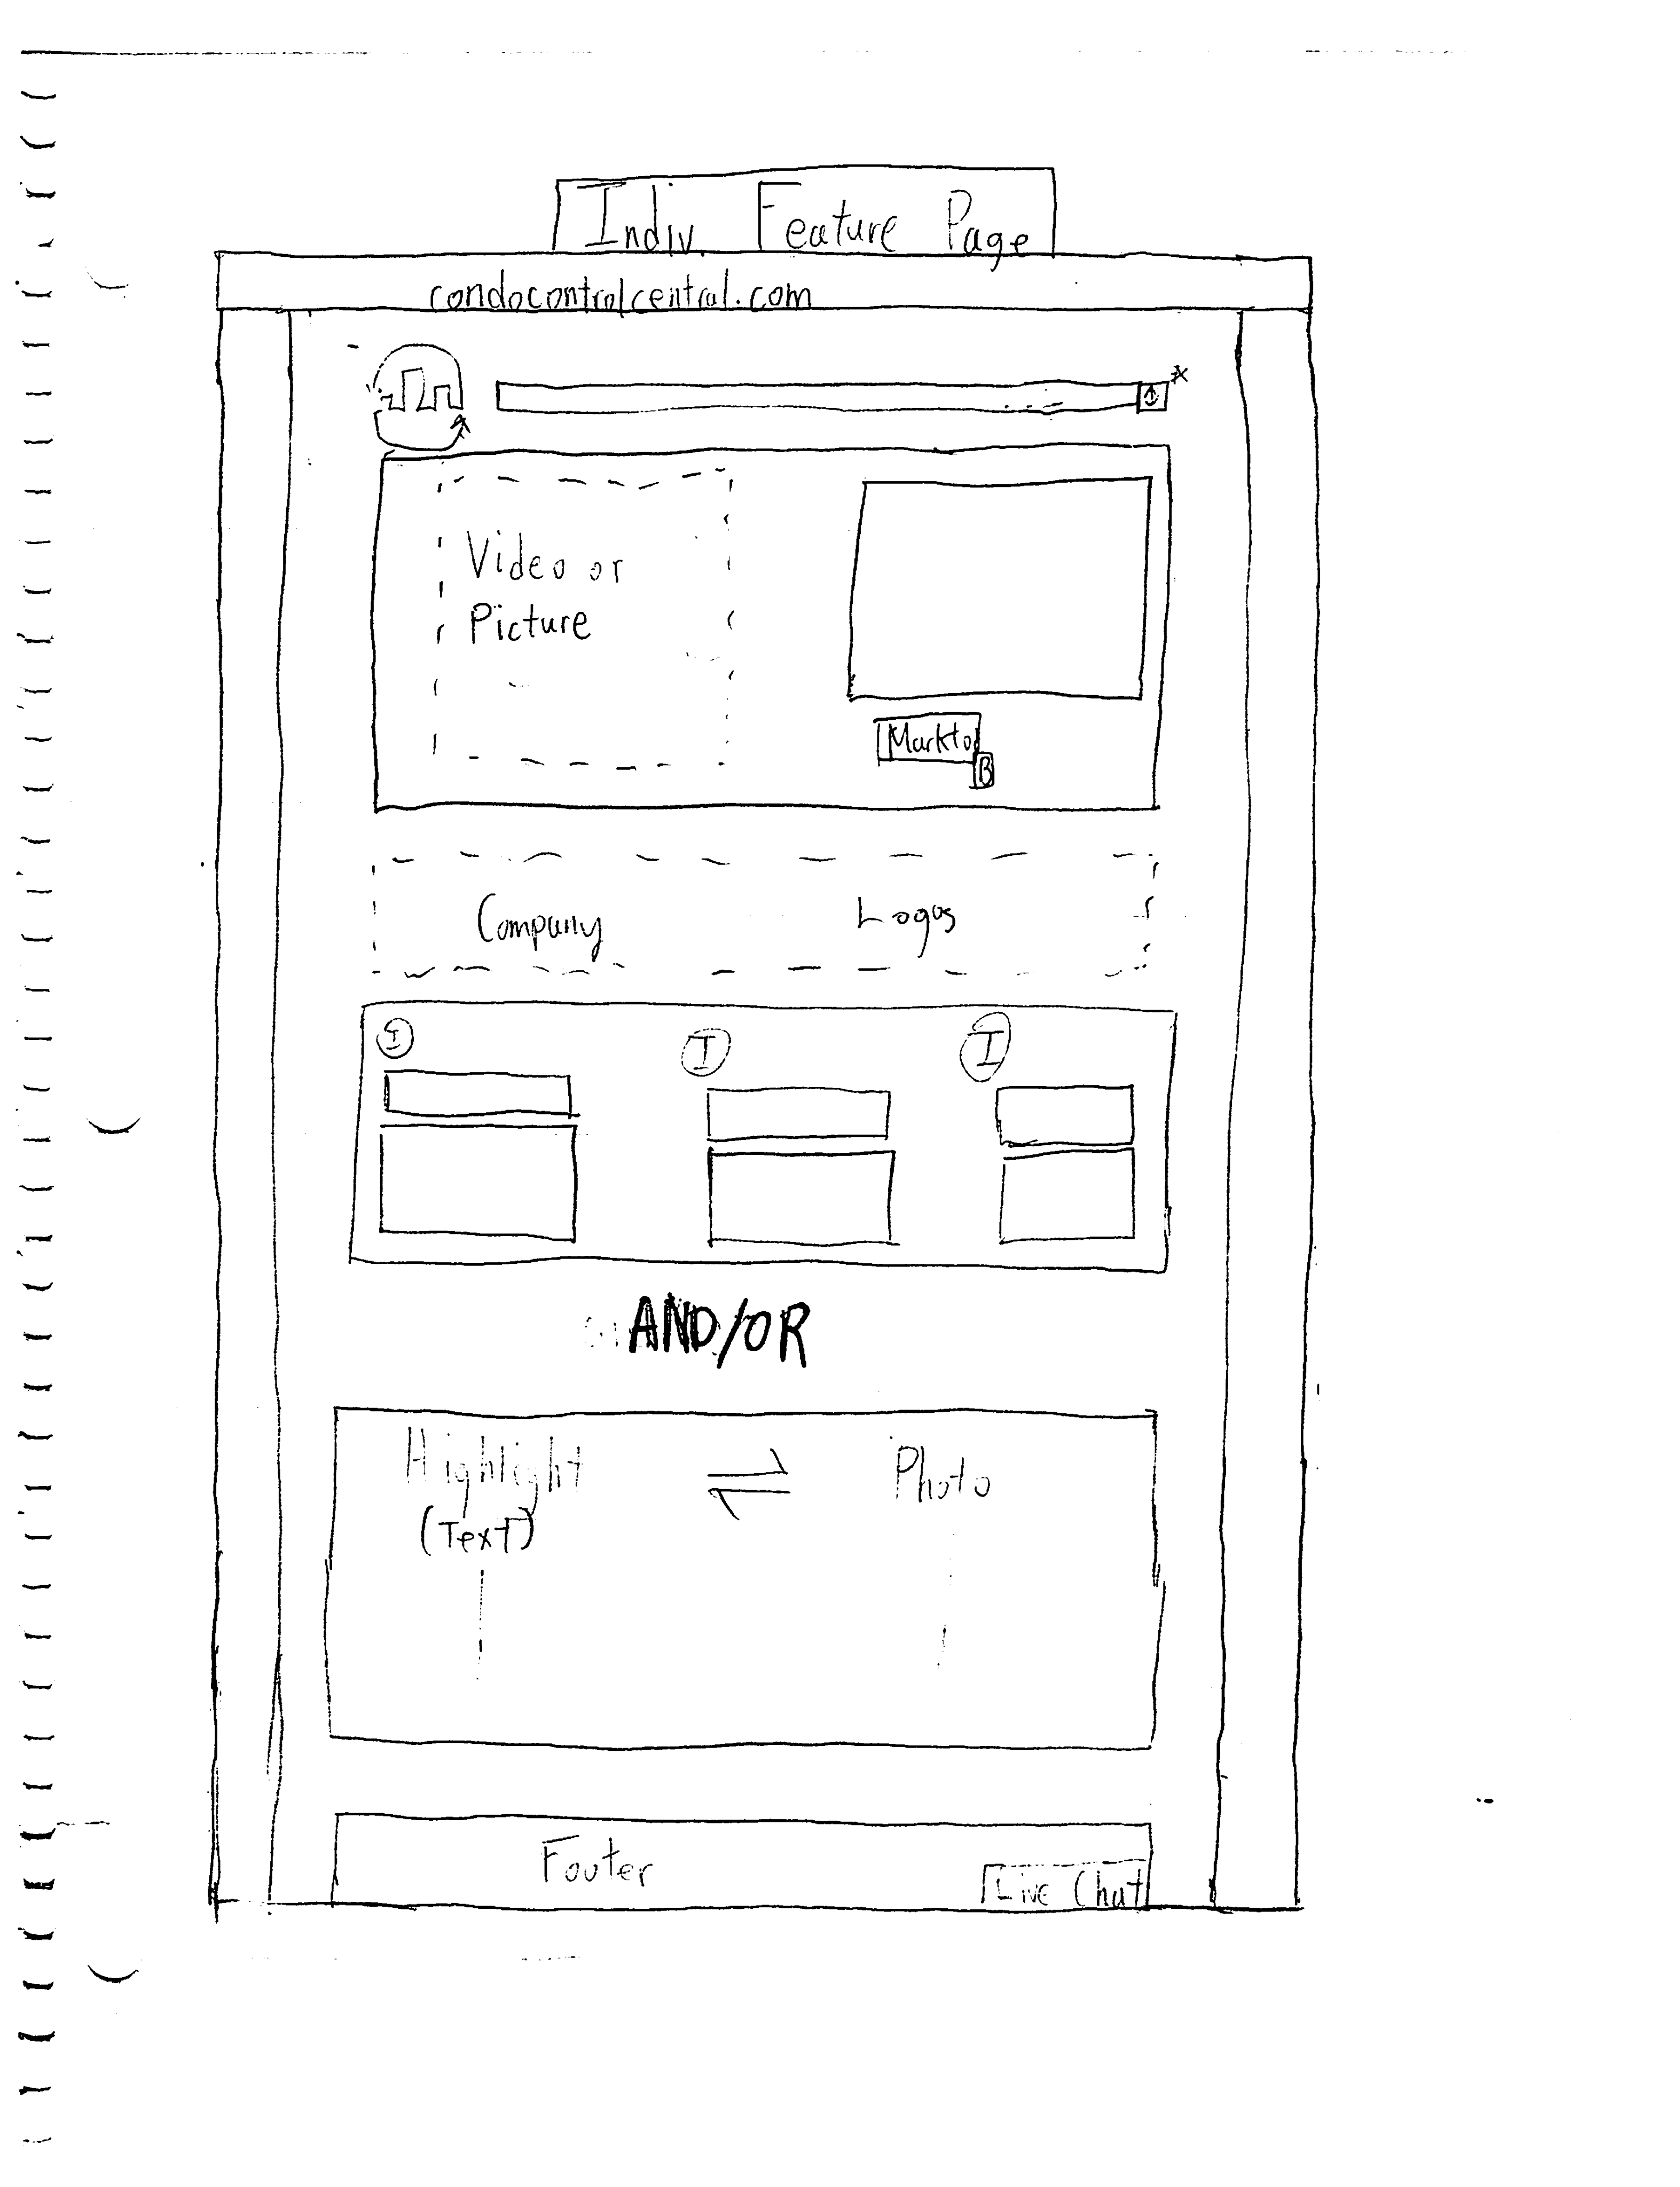 Indiv Feature Page
condocontrolcentral.com
Video or
Picture
Markto
B
Company Logos
I I I
AND/OR
Highlight Photo
(Text)
Footer
Live Chat